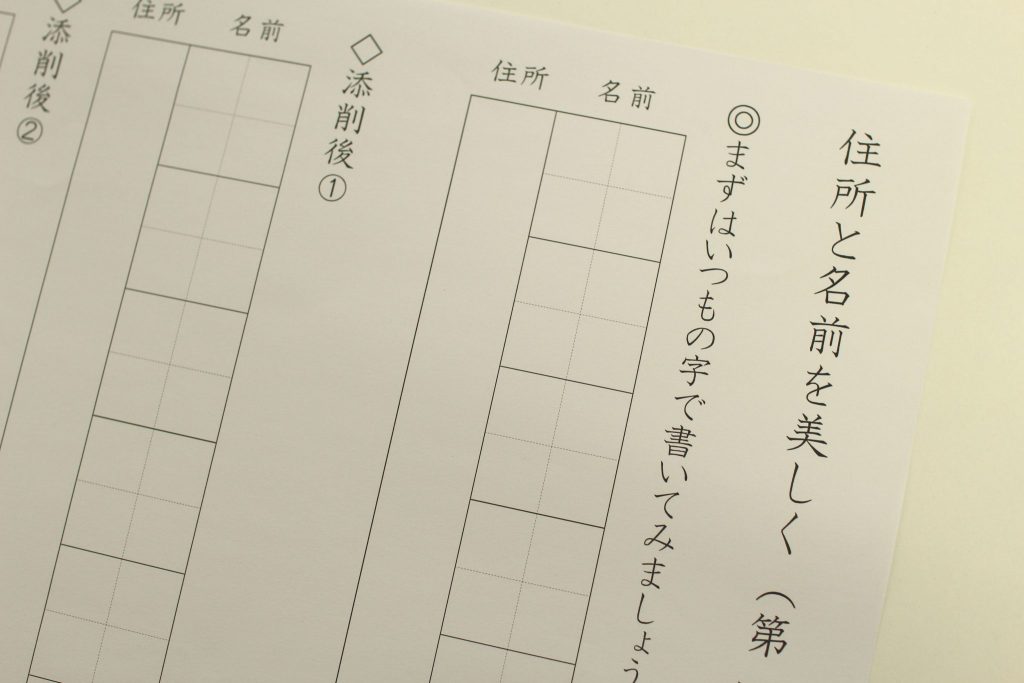 住所と名前を美しく（第
◎まずはいつもの字で書いてみましょう
名前
住所
◇添削後①
名前
住所
◇添削後②